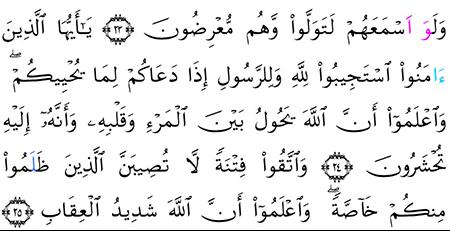 وَلَوَ اَسْمَعَهُمْ لَتَوَلَّواْ وَّهُم مُّعْرِضُونَ ۝٢٣ يَٰٓأَيُّهَا اَلذِينَ
ءَامَنُواْ اُسْتَجِيبُواْ لِلهِ وَلِلرَّسُولِ إِذَا دَعَاكُمْ لِمَا يُحْيِيكُمْۖ
وَاعْلَمُوٓاْ أَنَّ اَللَّهَ يَحُولُ بَيْنَ اَلْمَرْءِ وَقَلْبِهِۦ وَأَنَّهُۥٓ إِلَيْهِ
تُحْشَرُونَ ۝٢٤ وَاتَّقُواْ فِتْنَةً لَّا تُصِيبَنَّ اَلذِينَ ظَلَمُواْ
مِنكُمْ خَآصَّةًۖ وَاعْلَمُوٓاْ أَنَّ اَللَّهَ شَدِيدُ اُلْعِقَابِ ۝٢٥